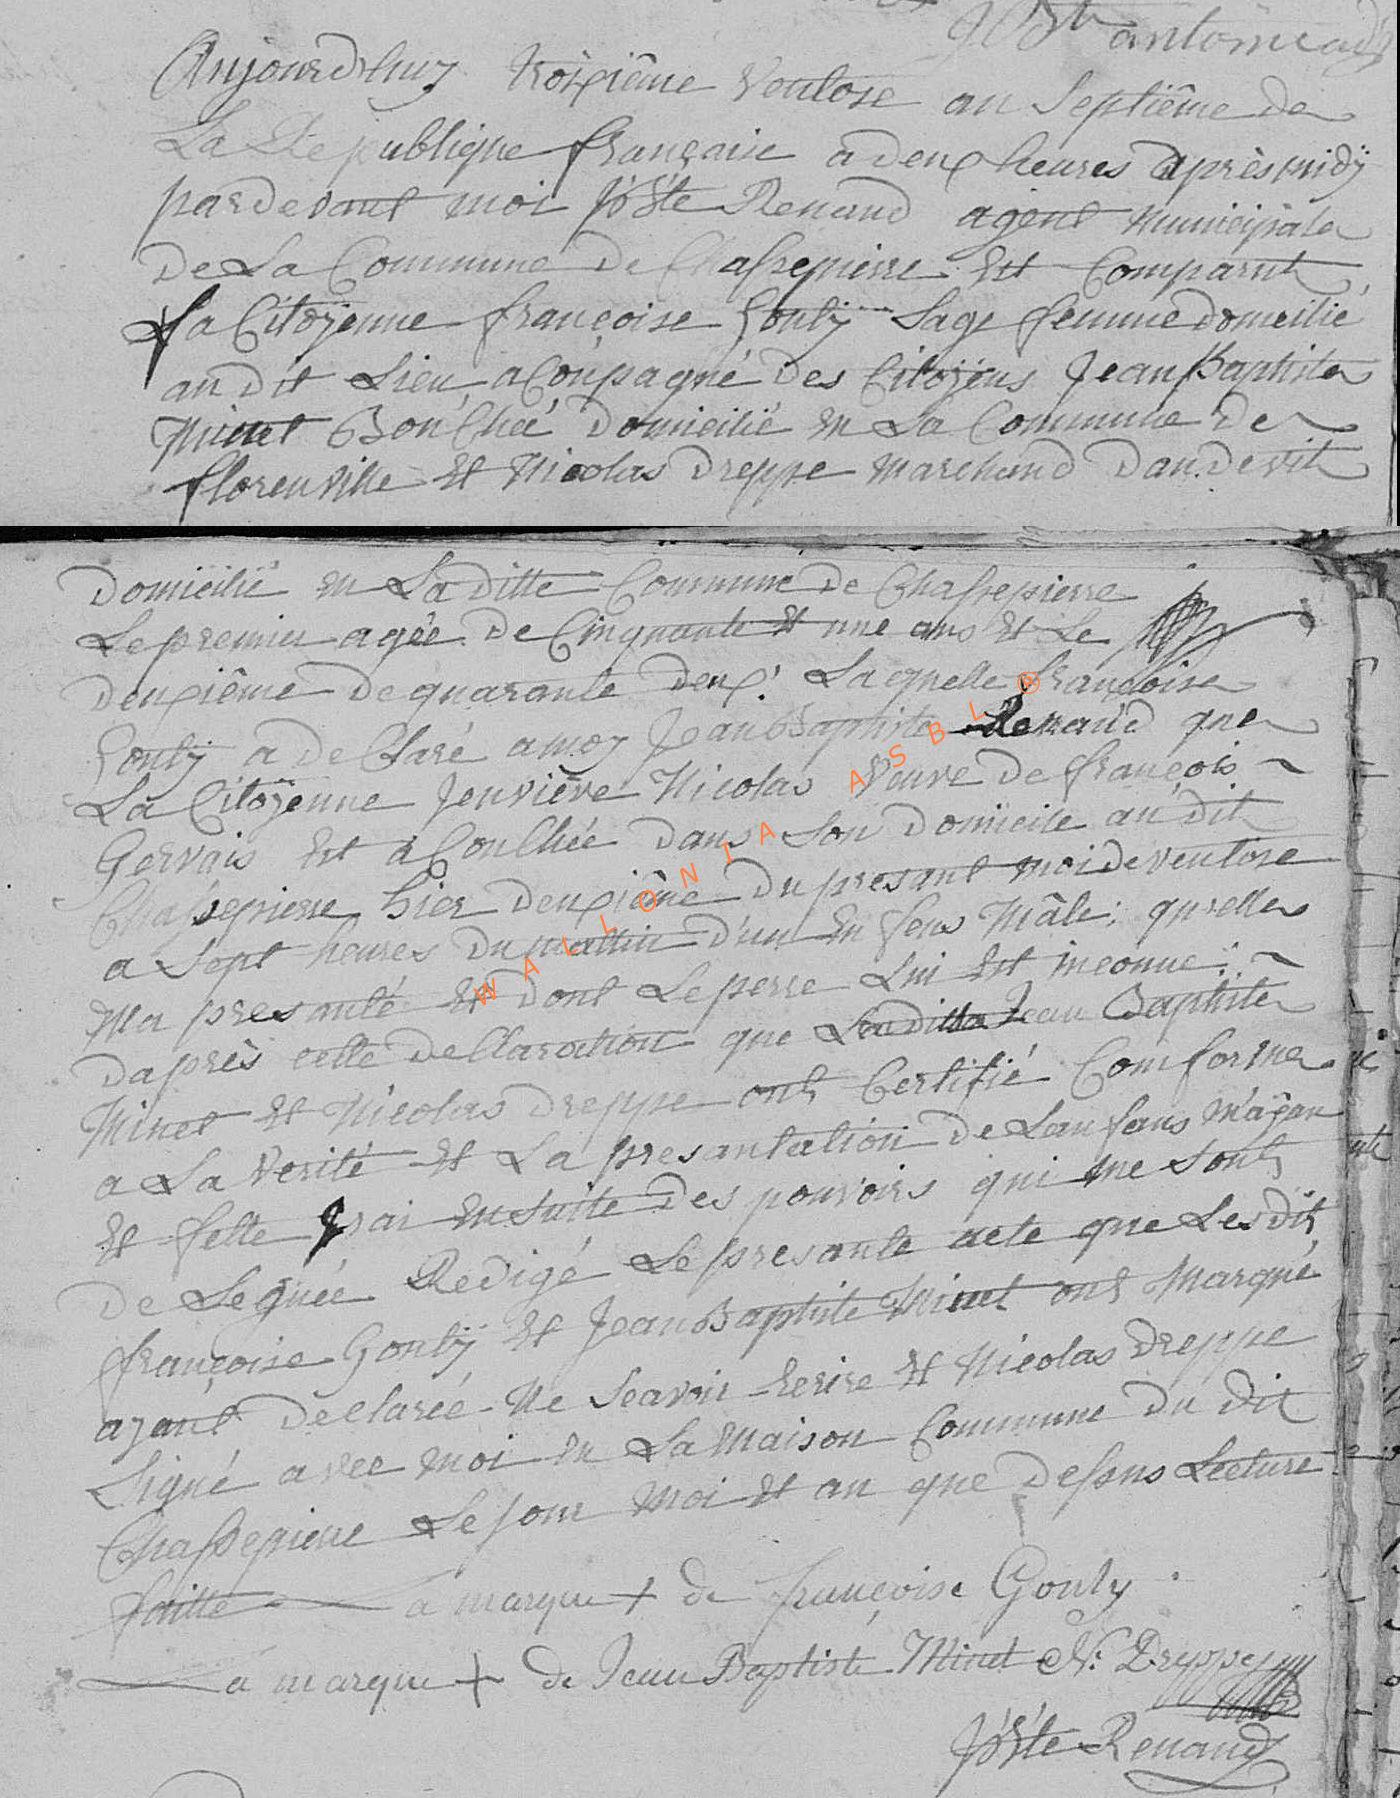 antoine
Anjourdhuy troixiême Ventose an Septiême de
La Republique française a deux heures après midÿ
pardevant moi JBste Renaud agent municipale
De La Commune de Chassepierre Est Comparut
La Citoÿenne françoise Goulÿ Sage femme domicilié
au dit Lieu acoupagné des Citoÿens Jean Baptiste
Minet domicilié En La Commune de
florenville Et Nicolas Dreppe Marchand
Domicilié En La ditte Commune de Chassepierre
Le premier agée de Cinquante Et une ans Et Le
deuxiême de quarante deux Laquelle françoise
Goulÿ a de Claré a moy Jean Baptiste Renaud que
La Citoÿenne Jenviève Nicolas Veuve de françois
Gervais Est acouchée dans Son domicile au dit
Chassepierre hier deuxiême du presant moi de ventose
a Sept heures du mattin d'un En fens Mâle; quelle
Ma presanté Et dont Le perre Lui Est inconnu;
Daprès cette declaration que Jean Baptiste
Minet Et Nicolas Dreppe ont Certifié Comforme
a La Verité Et La presantation de Lanfans M'aÿan
Et fette Jrai Ensuite Des pouvoirs qui me Sont
De Leguée Redigé Le presante acte que Lesdit
françoise Goulÿ Et Jean Baptiste Minet ont Marqué
ayant declarée Ne Scavoir Ecrire Et Nicolas Dreppe
Signé avec moi En La Maison Commune du dit
Chassepierre Le jour moi Et an que dessus Lecture
faitte a marque + de françoise Gouly
a marque + de Jean Baptiste Minet N: Dreppe
JBste Renaud
WALLONIA ASBL ®